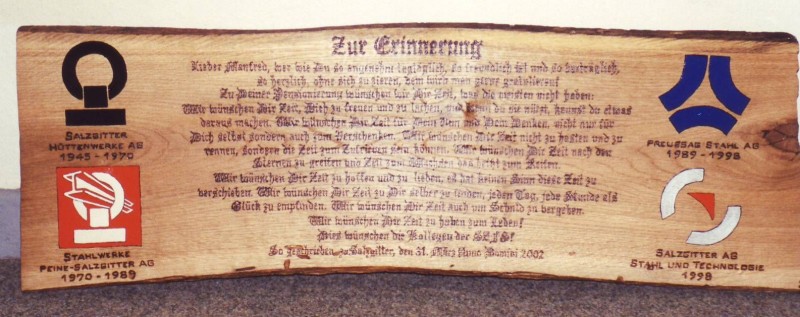 Zur Erinnerung
Lieber Manfred, wer wie Du so angenehm so freundlich ist und so
so herzlich, ohne sich zu zieren, dem wird man gerne gratulieren!
Zu Deiner Pensionierung wünschen wir Dir Zeit, was die meisten nicht haben:
Wir wünschen Dir Zeit, Dich zu freuen und zu lachen, und wenn du sie nützt, kannst du etwas
daraus machen. Wir wünschen Dir Zeit für Dein Tun und Dein Denken, nicht nur für
Dich selbst sondern auch zum Verschenken. Wir wünschen Dir Zeit nicht zu hasten und zu
rennen, sondern die Zeit zum Zufrieden sein können. Wir wünschen Dir Zeit nach den
Sternen zu greifen und Zeit zum Wachsen das heißt zum Reifen.
Wir wünschen Dir Zeit zu hoffen und zu lieben, es hat keinen Sinn diese Zeit zu
verschieben. Wir wünschen Dir Zeit zu Dir selber zu finden, jeden Tag, jede Stunde als
Glück zu empfinden. Wir wünschen Dir Zeit auch um Schuld zu vergeben.
Wir wünschen Dir Zeit zu haben zum Leben!
Dies wünschen die Kollegen der
So geschrieben zu Salzgitter, den 31. März Anno Domini 2002
SALZGITTER
HÜTTENWERKE AG
1945 - 1970
STAHLWERKE
PEINE-SALZGITTER AG
1970 - 1989
PREUSSAG STAHL AG
1989 - 1998
SALZGITTER AG
STAHL UND TECHNOLOGIE
1998